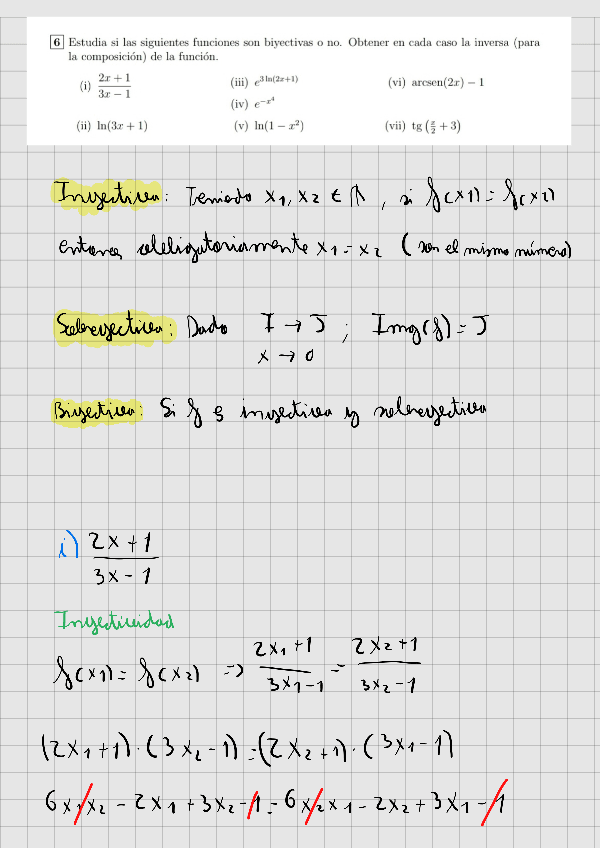 6 Estudia si las siguientes funciones son biyectivas o no. Obtener en cada caso la inversa (para
la composición) de la función.
(i) \frac{2x+1}{3x-1} (iii) e^{3\ln(2x+1)} (vi) arcsen(2x) − 1
(iv) e^{-x^4}
(ii) ln(3x + 1) (v) ln(1 − x²) (vii) tg (\frac{x}{2} + 3)
Inyectiva: Teniedo x1, x2 ∈ A, si f(x1) = f(x2)
entonces obligatoriamente x1 = x2 (son el mismo número)
Sobreyectiva: Dado I → J ; Img(f) = J
x → 0
Biyectiva: Si f es inyectiva y sobreyectiva
i) \frac{2x+1}{3x-1}
Inyectividad
f(x1) = f(x2) => \frac{2x1+1}{3x1-1} = \frac{2x2+1}{3x2-1}
(2x1+1)·(3x2-1) = (2x2+1)·(3x1-1)
6x1x2 - 2x1 + 3x2 - 1 = 6x2x1 - 2x2 + 3x1 - 1